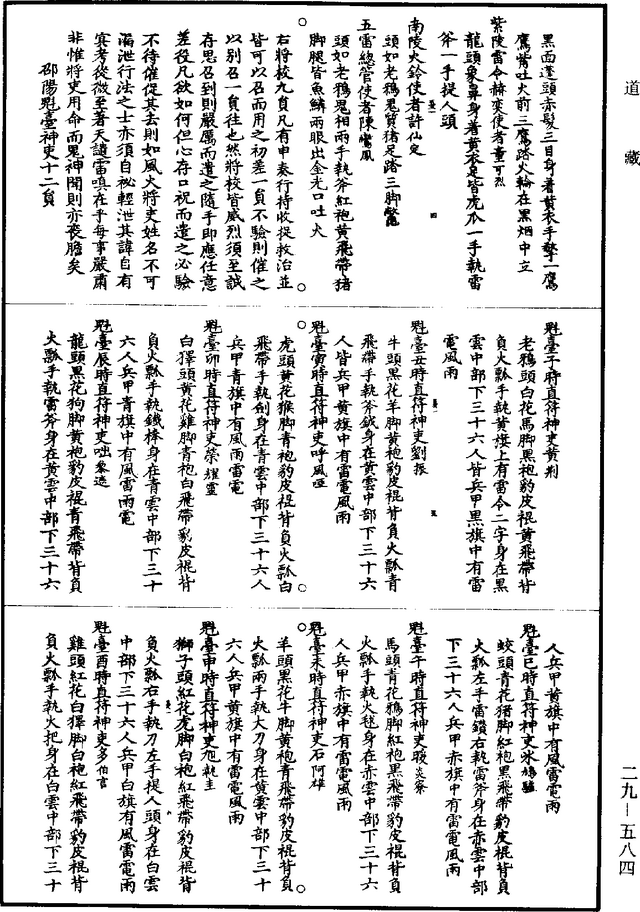 道藏
黑面蓬頭赤髮三目身着黃衣手擎一鷹
鷹觜吐火前三鷹踏火輪在黑烟中立
紫陵雷令赫奕使者童可烈
龍頭象鼻身着黃衣足皆虎爪一手執雷
斧一手提人頭
南陵火鈴使者許仙定
頭如老鴉鬼質猪足踏三脚鱉
五雷總管使者陳鸞鳳
頭如老鴉鬼相兩手執斧紅袍黃飛帶猪
脚腿皆魚鱗兩眼出金光口吐火
右將校九員凡有申奏行持收捉救治並
皆可以召而用之初差一員不驗則催之
以別召一員往也然將校皆威烈須至誠
存思召到則嚴厲而遣之隨手即應任意
差役凡欲如何但心存口祝而遣之必驗
不待催促其去則如風火將吏姓名不可
漏泄行法之士亦須自祕輕泄其諱自有
冥考從微至著天譴雷嗔在乎每事嚴肅
非惟將吏用命而鬼神聞則亦喪膽矣
邵陽魁臺神吏十二員
魁臺子時直符神吏黃判
老鴉頭白花馬脚黑袍豹皮裩黃飛帶背
負火瓢手執黃旗上有雷令二字身在黑
雲中部下三十六人皆兵甲黑旗中有雷
電風雨
魁臺丑時直符神吏劉振
牛頭黑花羊脚黃袍豹皮裩背負火瓢青
飛帶手執斧鉞身在黃雲中部下三十六
人皆兵甲黃旗中有雷電風雨
魁臺寅時直符神吏呼風啞
虎頭黃花猴脚青袍豹皮裩背負火瓢白
飛帶手執劍身在青雲中部下三十六人
兵甲青旗中有風雨雷電
魁臺卯時直符神吏榮耀靈
白獐頭黃花雞脚青袍白飛帶豹皮裩背
負火瓢手執鐵棒身在青雲中部下三十
六人兵甲青旗中有風雷雨電
魁臺辰時直符神吏咄黎造
龍頭黑花狗脚黃袍豹皮裩青飛帶背負
火瓢手執雷斧身在黃雲中部下三十六
人兵甲黃旗中有風雷電雨
魁臺巳時直符神吏米鳩驢
蛟頭青花猪脚紅袍黑飛帶豹皮裩背負
火瓢左手雷鑽右執雷斧身在赤雲中部
下三十六人兵甲赤旗中有雷電風雨
魁臺午時直符神吏 炎麥
馬頭青花鴉脚紅袍黑飛帶豹皮裩背負
火瓢手執火毬身在赤雲中部下三十六
人兵甲赤旗中有雷電風雨
魁臺未時直符神吏石阿雄
羊頭黑花牛脚黃袍青飛帶豹皮裩背負
火瓢兩手執大刀身在黃雲中部下三十
六人兵甲黃旗中有雷電風雨
魁臺申時直符神吏旭執圭
獅子頭紅花虎脚白袍紅飛帶豹皮裩背
負火瓢右手執刀左手提人頭身在白雲
中部下三十六人兵甲白旗有風雷電雨
魁臺酉時直符神吏多伯言
雞頭紅花白獐脚白袍紅飛帶豹皮裩背
負火瓢手執火把身在白雲中部下三十
二九—五八四